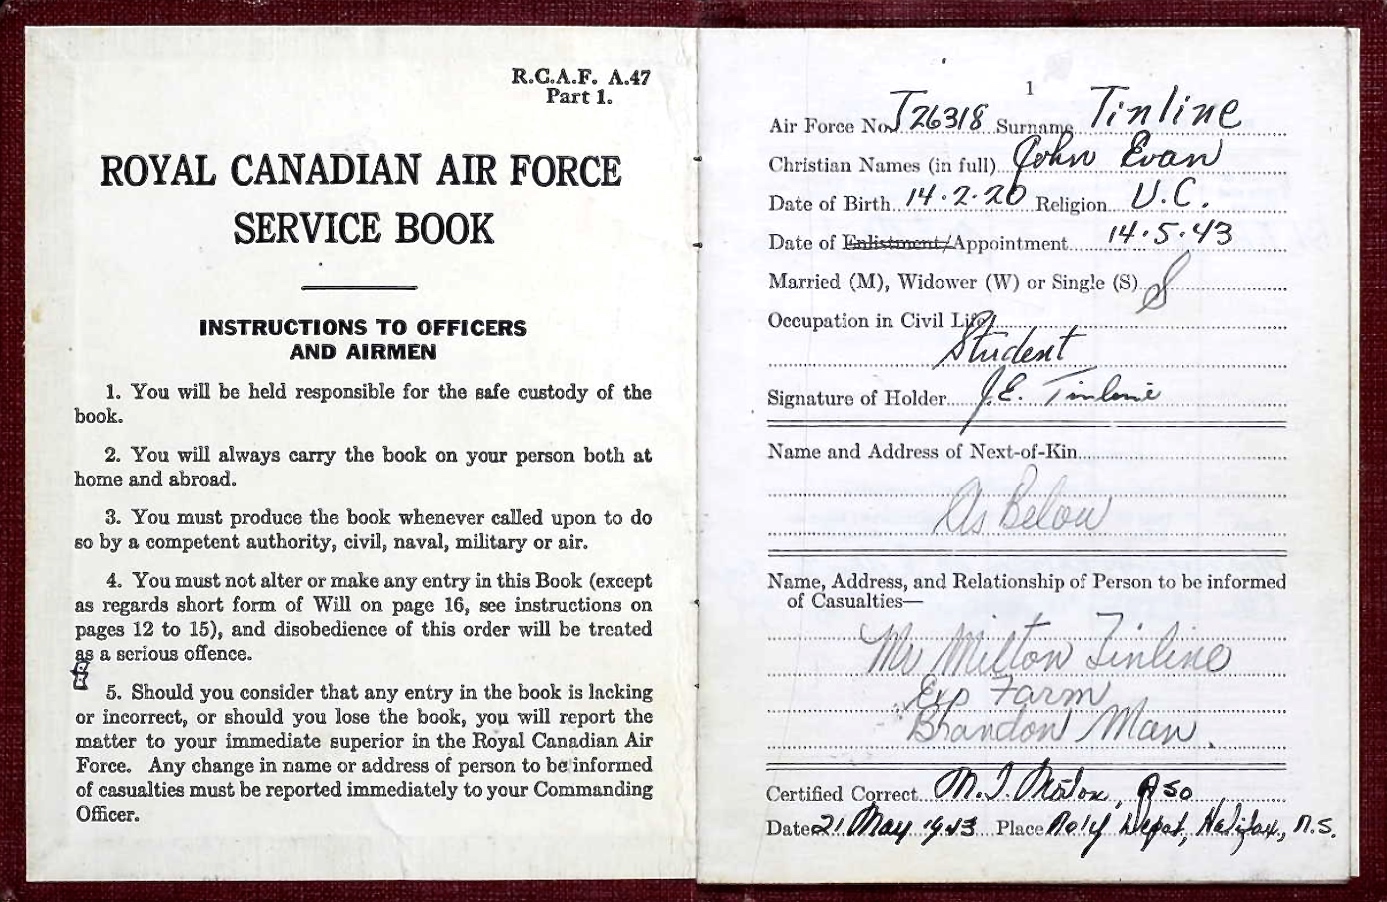 R.C.A.F. A.47
Part 1.
ROYAL CANADIAN AIR FORCE
SERVICE BOOK
INSTRUCTIONS TO OFFICERS
AND AIRMEN
1. You will be held responsible for the safe custody of the
book.
2. You will always carry the book on your person both at
home and abroad.
3. You must produce the book whenever called upon to do
so by a competent authority, civil, naval, military or air.
4. You must not alter or make any entry in this Book (except
as regards short form of Will on page 16, see instructions on
pages 12 to 15), and disobedience of this order will be treated
as a serious offence.
5. Should you consider that any entry in the book is lacking
or incorrect, or should you lose the book, you will report the
matter to your immediate superior in the Royal Canadian Air
Force. Any change in name or address of person to be informed
of casualties must be reported immediately to your Commanding
Officer.
1
Air Force No. J26318 Surname Tinline
Christian Names (in full) John Evan
Date of Birth 14.2.20 Religion U.C.
Date of Enlistment/Appointment 14.5.43
Married (M), Widower (W) or Single (S) S
Occupation in Civil Life
Student
Signature of Holder J.E. Tinline
Name and Address of Next-of-Kin
As Below
Name, Address, and Relationship of Person to be informed
of Casualties—
Mr Milton Tinline
Exp Farm
Brandon Man.
Certified Correct M.
Date 21 May 1943 Place Depot, Halifax, N.S.